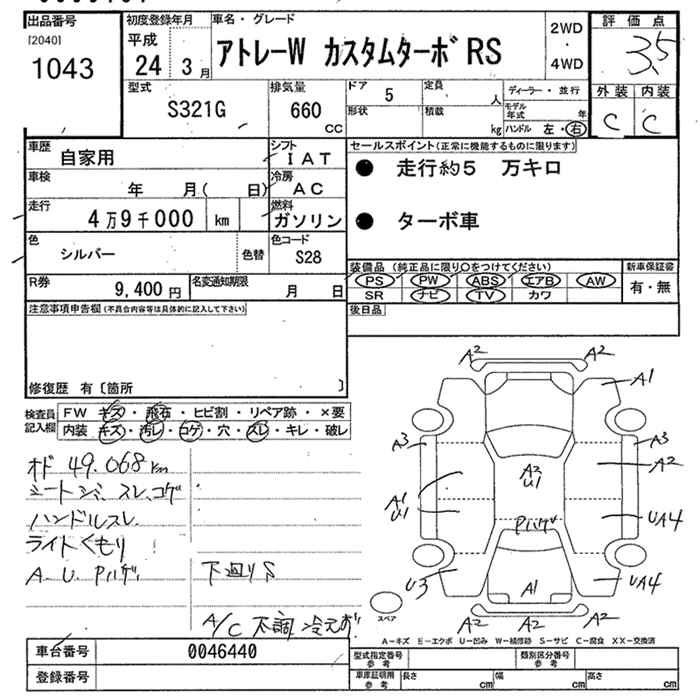 出品番号
[2040]
1043
初度登録年月
平成
24 3月
車名・グレード
アトレーW カスタムターボRS
2WD
・
4WD
評価点
3.5
外装 内装
C C
型式
S321G
排気量
660
CC
ドア
5
形状
定員
人
積載
kg
ディーラー・並行
モデル年式 年
ハンドル 左・右
車歴
自家用
シフト
IAT
車検
年 月( 日)
冷房
AC
走行
4万9千000 km
燃料
ガソリン
色
シルバー
色替
色コード
S28
R券
9,400円
名変通知期限
月 日
セールスポイント(正常に機能するものに限ります)
● 走行約5 万キロ
● ターボ車
装備品 (純正品に限り○をつけてください)
PS PW ABS エアB AW
SR ナビ TV カワ
新車保証書
有・無
後日品
注意事項申告欄(不具合内容等は具体的に記入して下さい)
修復歴 有〔箇所 〕
検査員記入欄
FW キズ・飛石・ヒビ割・リペア跡・×要
内装 キズ・汚レ・コゲ・穴・スレ・キレ・破レ
オド 49.068km
シートシミ、スレ、コゲ
ハンドルスレ
ライトくもり
A.U.Pハゲ
下廻りS
A/C 不調 冷えず
A2 A2
A1
A3 A3
A2
A2
U1
A1
U1
Pハゲ
UA4
U3
UA4
A1
A2 A2
スペア
A-キズ E-エクボ U-凹み W-補修跡 S-サビ C-腐食 XX-交換済
車台番号
0046440
登録番号
型式指定番号
参考
類別区分番号
参考
車庫証明用
参考
長さ cm
幅 cm
高さ cm